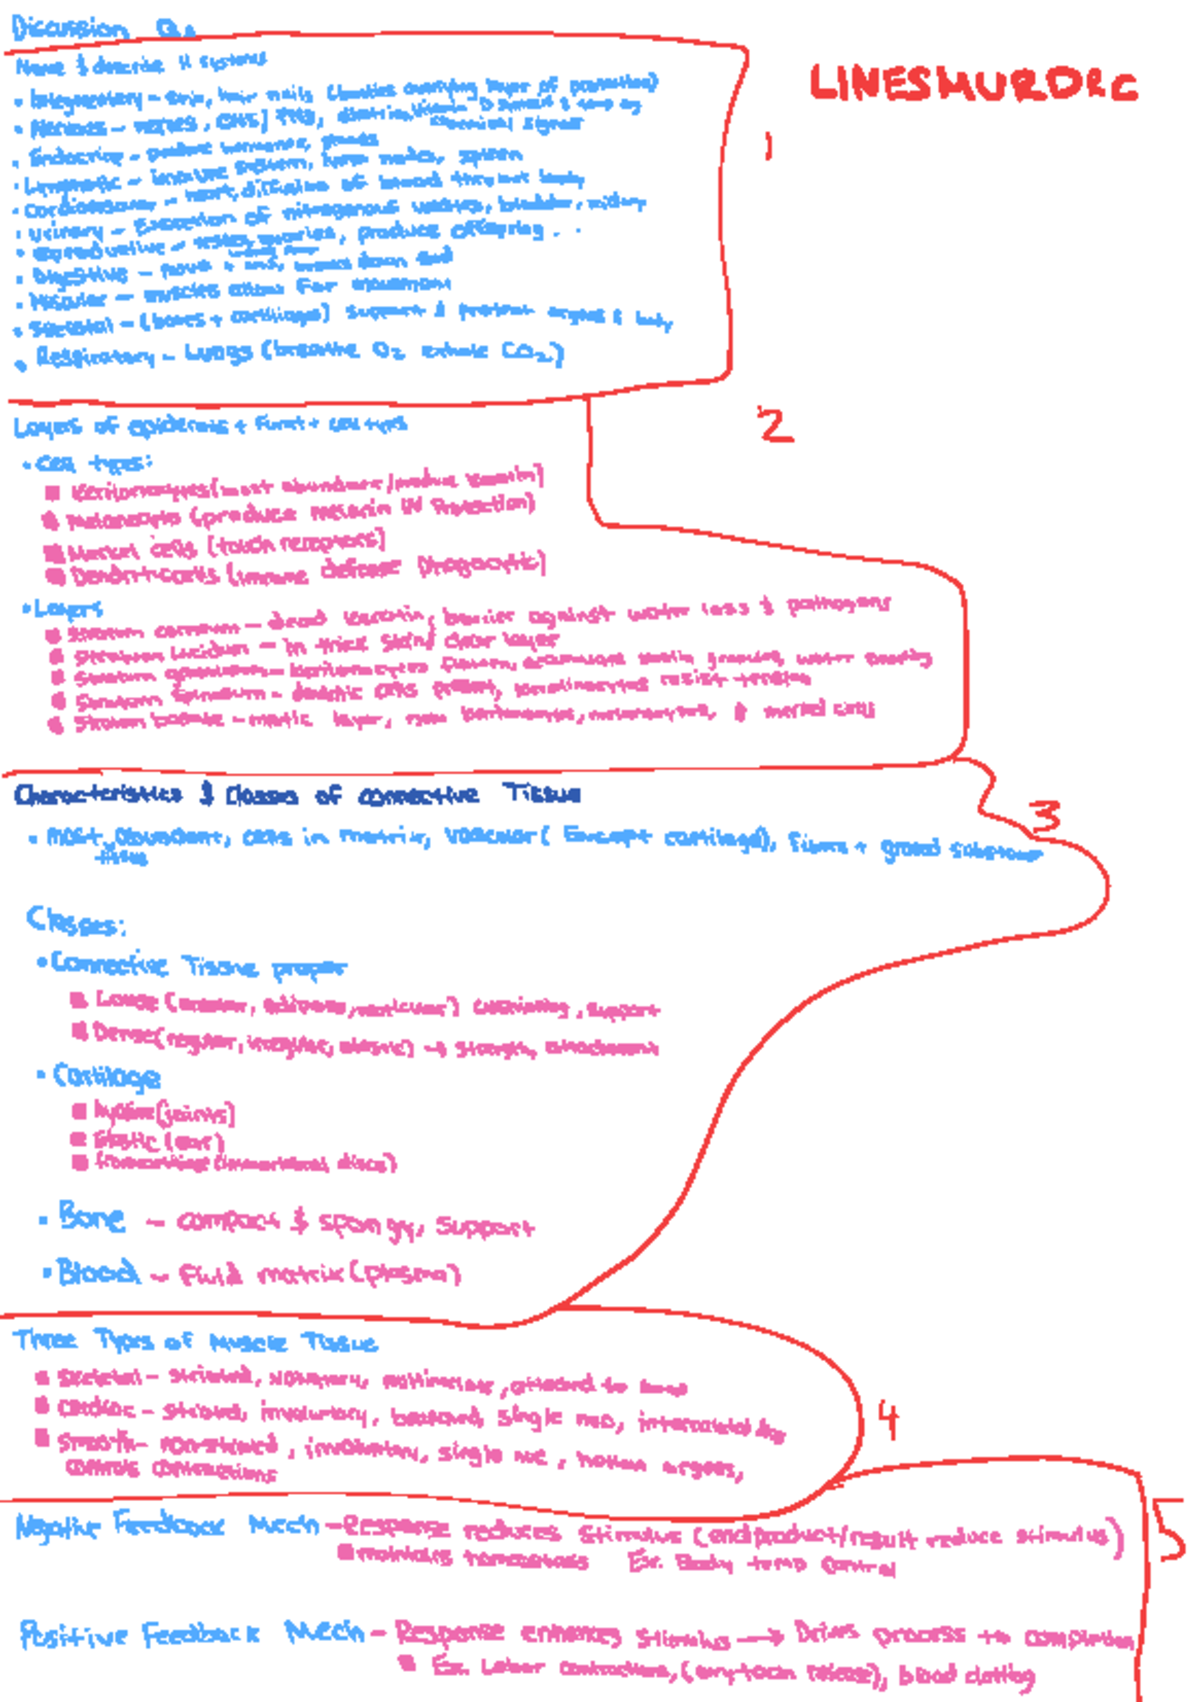 Discussion Qs
Name & describe 11 systems
LINESMURDRC
1
• Integumentary - skin, hair nails layer of protection)
• Nervous - nerves, CNS] PNS,
chemical signals
• Endocrine - produce hormones, glands
• Lymphatic - immune system, lymph nodes, spleen
• Cardiovascular - heart, diffusion of blood thruout body
• Urinary - Excretion of nitrogenous wastes, bladder, kidney
• Reproductive - testes, ovaries, produce offspring . .
• Digestive - mouth + anus, breaks down food
• Muscular - muscles allow for movement
• Skeletal - (bones + cartilages) support & protect organs & body
• Respiratory - Lungs (breathe O2 exhale CO2)
2
Layers of epidermis + funct + cell types
• Cell types:
Keritonocytes (most abundant/produce keratin)
Melanocytes (produce melanin UV Protection)
Merkel cells (touch receptors)
Dendritic cells (immune defense phagocytic)
• Layers
Stratum corneum - dead keratin, barrier against water loss & pathogens
Stratum Lucidum - in thick skin, clear layer
Stratum granulosum - keritonocytes flatten, accumulate keratin granules, water
Stratum Spinosum - dendritic cells present, keratinocytes resist tension
Stratum basale - layer, new keritonocytes, melanocytes, & merkel cells
3
Characteristics & Classes of connective Tissue
• most abundant, cells in matrix, vascular ( Except cartilage), fibers + ground substance
tissue
Classes:
• Connective Tissue proper
Loose (areolar, adipose, reticular) cushioning, support
Dense (regular, irregular, elastic) → strength, attachment
• Cartilage
hyaline (joints)
Elastic (ear)
fibrocartilage (intervertebral discs)
• Bone - compact & spongy, support
• Blood - fluid matrix (plasma)
Three Types of Muscle Tissue
4
Skeletal - striated, voluntary, multinuclear, attached to bone
Cardiac - striated, involuntary, branched, single nuc, intercalated disc
Smooth - non-striated, involuntary, single nuc, hollow organs,
controls contractions
5
Negative Feedback Mech - Response reduces stimulus (end product/result reduce stimulus)
maintains homeostasis Ex. Body temp control
Positive Feedback Mech - Response enhances stimulus → Drives process to completion
Ex. Labor contractions, (oxytocin release), blood clotting